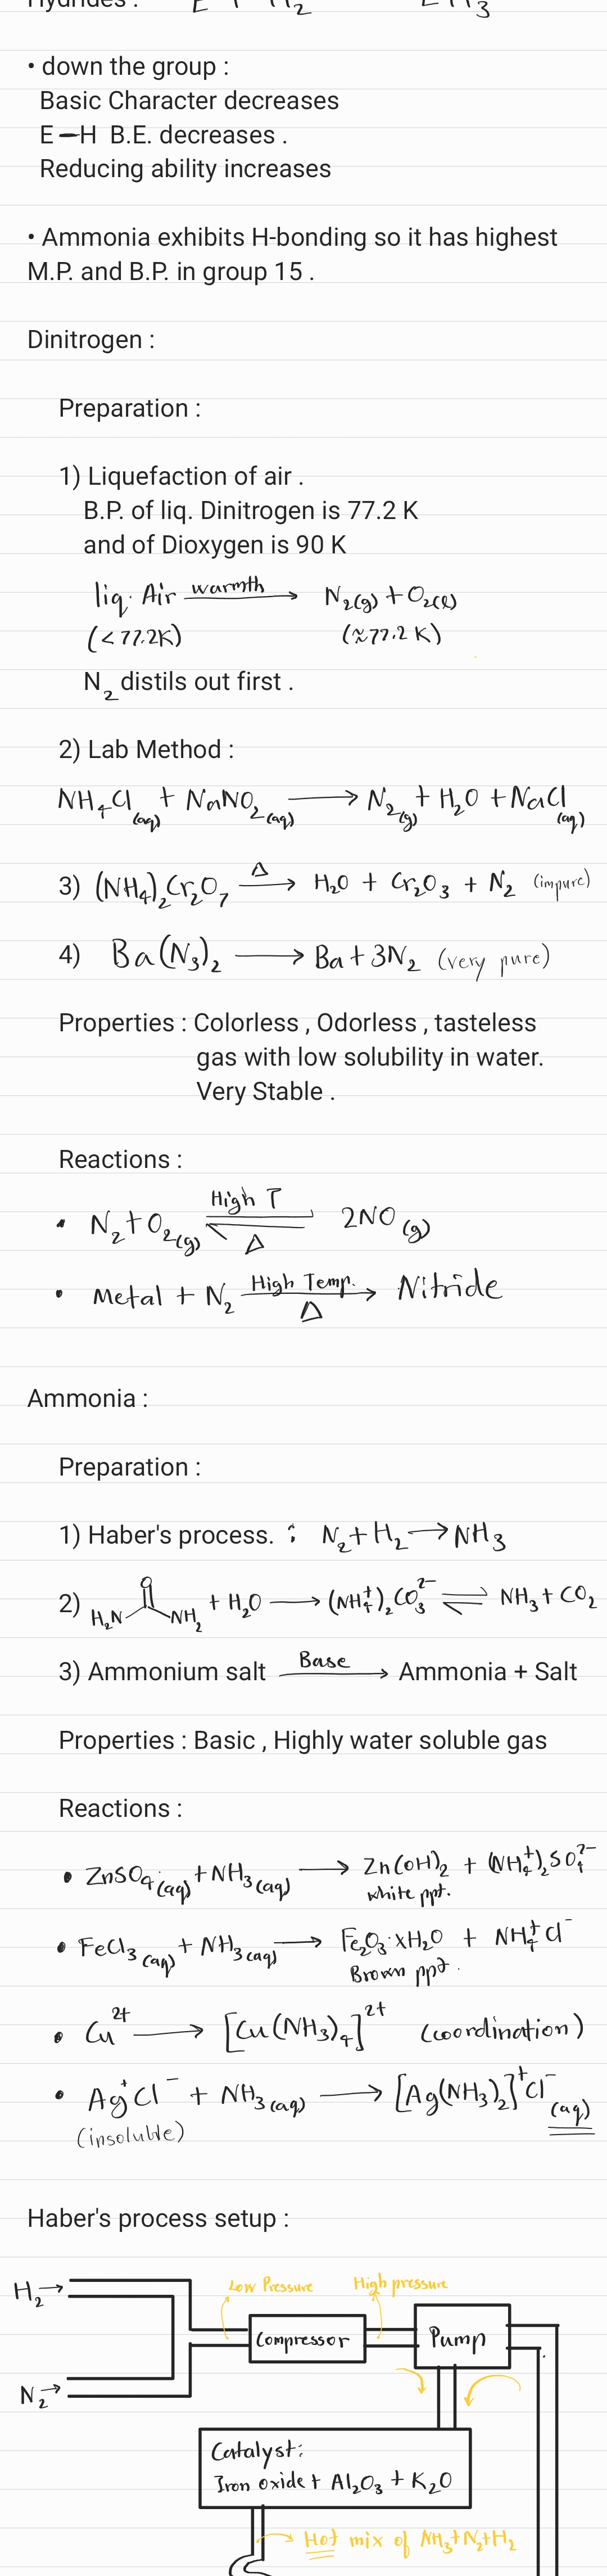 Hydrides : E + H₂ EH₃
• down the group :
Basic Character decreases
E—H B.E. decreases .
Reducing ability increases
• Ammonia exhibits H-bonding so it has highest
M.P. and B.P. in group 15 .
Dinitrogen :
Preparation :
1) Liquefaction of air .
B.P. of liq. Dinitrogen is 77.2 K
and of Dioxygen is 90 K
liq. Air —warmth→ N₂(g) + O₂(l)
(<77.2K) (≈77.2 K)
N₂ distils out first .
2) Lab Method :
NH₄Cl(aq) + NaNO₂(aq) → N₂(g) + H₂O + NaCl(aq)
3) (NH₄)₂Cr₂O₇ —Δ→ H₂O + Cr₂O₃ + N₂ (impure)
4) Ba(N₃)₂ → Ba + 3N₂ (very pure)
Properties : Colorless , Odorless , tasteless
gas with low solubility in water.
Very Stable .
Reactions :
High T
• N₂ + O₂(g) ⇌ 2NO(g)
Δ
High Temp.
• Metal + N₂ → Nitride
Δ
Ammonia :
Preparation :
1) Haber's process. : N₂ + H₂ → NH₃
O
2) H₂N NH₂ + H₂O → (NH₄⁺)₂CO₃²⁻ ⇌ NH₃ + CO₂
3) Ammonium salt —Base→ Ammonia + Salt
Properties : Basic , Highly water soluble gas
Reactions :
• ZnSO₄(aq) + NH₃(aq) → Zn(OH)₂ + (NH₄⁺)₂SO₄²⁻
white ppt.
• FeCl₃(aq) + NH₃(aq) → Fe₂O₃·xH₂O + NH₄⁺Cl⁻
Brown ppt.
• Cu²⁺ → [Cu(NH₃)₄]²⁺ (coordination)
• Ag⁺Cl⁻ + NH₃(aq) → [Ag(NH₃)₂]⁺Cl⁻(aq)
(insoluble)
Haber's process setup :
H₂→
Low Pressure High pressure
Compressor Pump
N₂→
Catalyst:
Iron oxide + Al₂O₃ + K₂O
→ Hot mix of NH₃+N₂+H₂